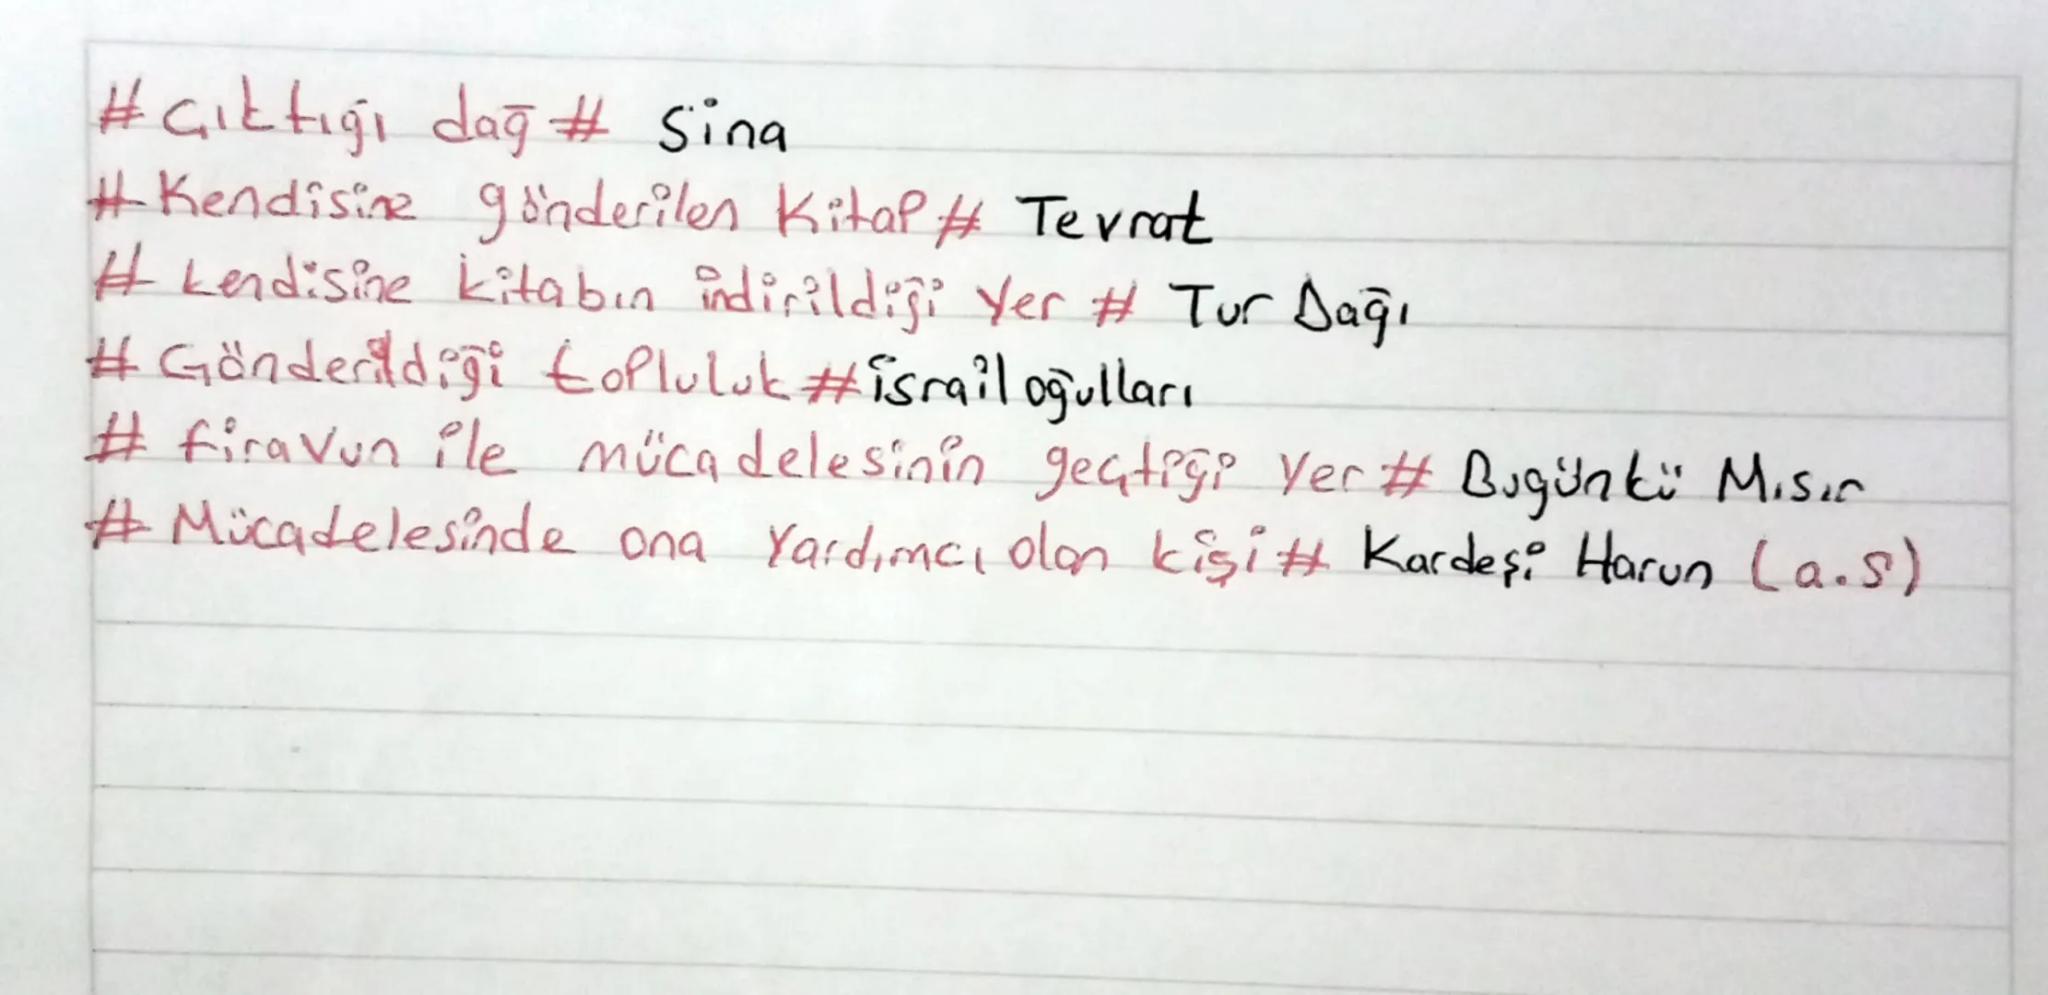 # Çıktığı dağ # Sina
# Kendisine gönderilen Kitap # Tevrat
# kendisine kitabın indirildiği Yer # Tur Dağı
# Gönderildiği topluluk # İsrail oğulları
# firavun ile mücadelesinin geçtiği Yer # Bugünkü Mısır
# Mücadelesinde ona Yardımcı olan kişi # Kardeşi Harun (a.s)